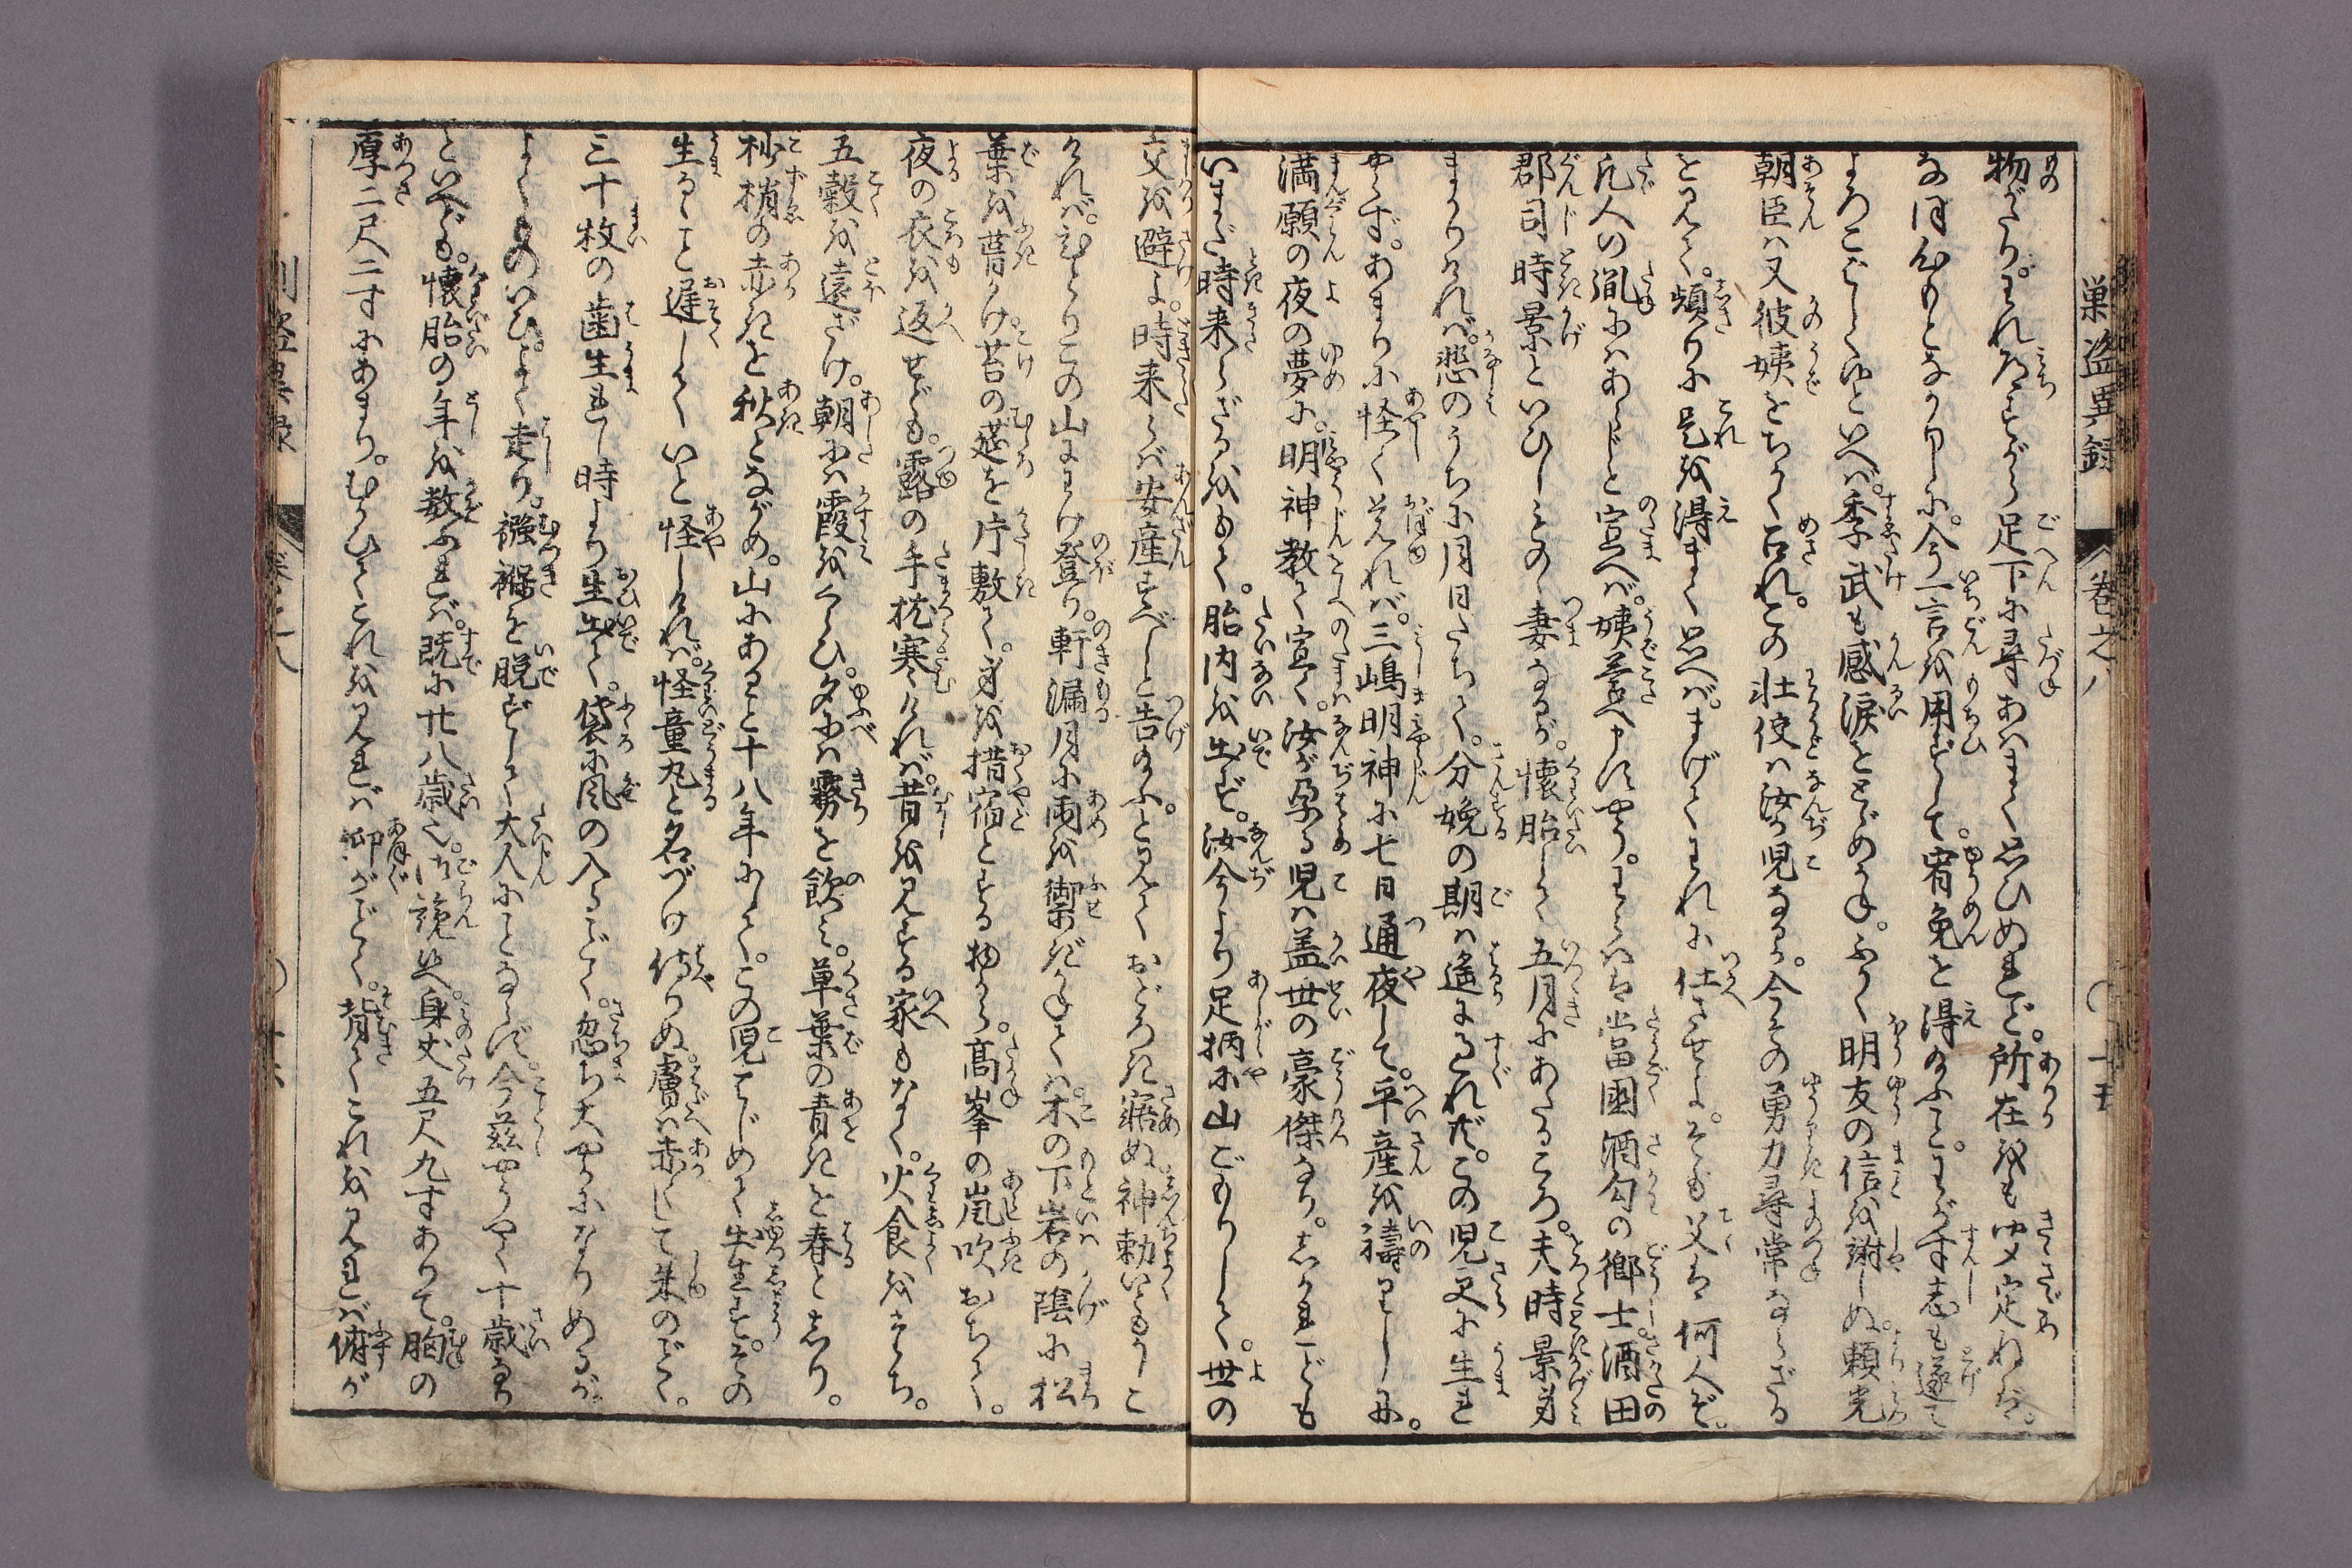 巣盗異録
巻之八
十五
物がたり。われたまさがに足下に尋あはまく思ひぬれど。所在をも㝎ねば。
なほ外ひとなかりしに。今一言を用ずして。宥免を得給ふこと。わが寸志も遂て
よろこばしくやといへば。季武も感涙をとゞめかね。ふかく朋友の信を謝しぬ。頼光
朝臣は又彼姨をちかく召れ。この壮佼は汝が児なるか。今その勇力尋常ならざる
を見て。頻りに是を得まく思へば。まげてわれに仕させよ。そも父は何人ぞ。
凡人の胤にはあらじと宣へば。姨答へ申すやう。わらは当國酒匂の郷士。酒田
郡司時景といひしものゝ妻なるが。懐胎して五月にあたるころ。夫時景身
まかりければ。悲のうちに月日たちて。分娩の期は遙に過れど。この児更に生れ
やらず。あまりに怪く覚れば。三嶋明神に七日通夜して。平産を禱りしに。
満願の夜の夢に。明神教て宣く。汝が孕る児は盖世の豪傑なり。しかれども
いまだ時来らざるをもて。胎内を出ず。汝今より足柄山にこもりして。世の
交を避よ。時来らば安産すべしと告給ふ。と見ておどろき寤ぬ。神勅いともかしこ
ければ。ひとりこの山にわけ登り。軒漏月に雨を禦ぎかねては。木の下岩の陰に松
葉を葺かけ苔の莚を片敷て。身を措宿とする物から。高峯の嵐吹おちて。
夜の衣を返せども。露の手枕寒ければ。昔を見する家もなく。火食をたち。
五穀を遠ざけ。朝には霞をくらひ。夕には霧を飲み。草葉の青きを春としり。
杪梢の赤きを秋とながめ。山にあること十八年にして。この児はじめて生出す。その
生るゝこと遅くして。いと怪しければ。怪童丸と名づけ侍りぬ。膚は赤くして朱のごとく。
三十枚の歯生れし時より生出て。袋に風の入るごとく。忽ち大やかになりぬるが。
よくものいひ。よく走り。襁褓を脱ずして大人にことならず。今茲やうやく十歳なり
といへども。懐胎の年を数ふれば。既に廿八歳也。御覧ぜよ。身丈五尺九寸ありて。胸の
厚二尺二寸にあまり。むかひてこれを見れば仰がごとく。背てこれを見れば俯が